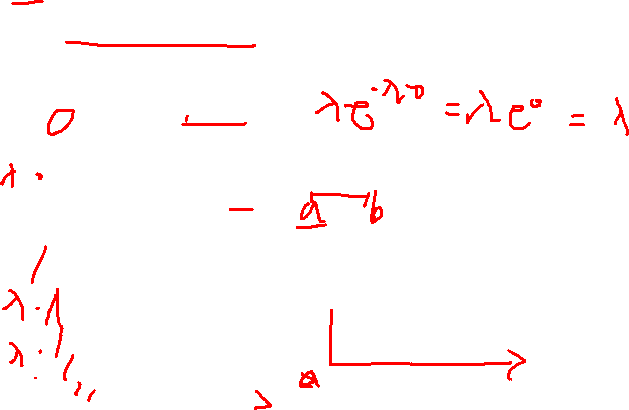 0 — λe^{-λ·0} = λe^0 = λ
λ ·
– a b
λ · 1
λ ·
a